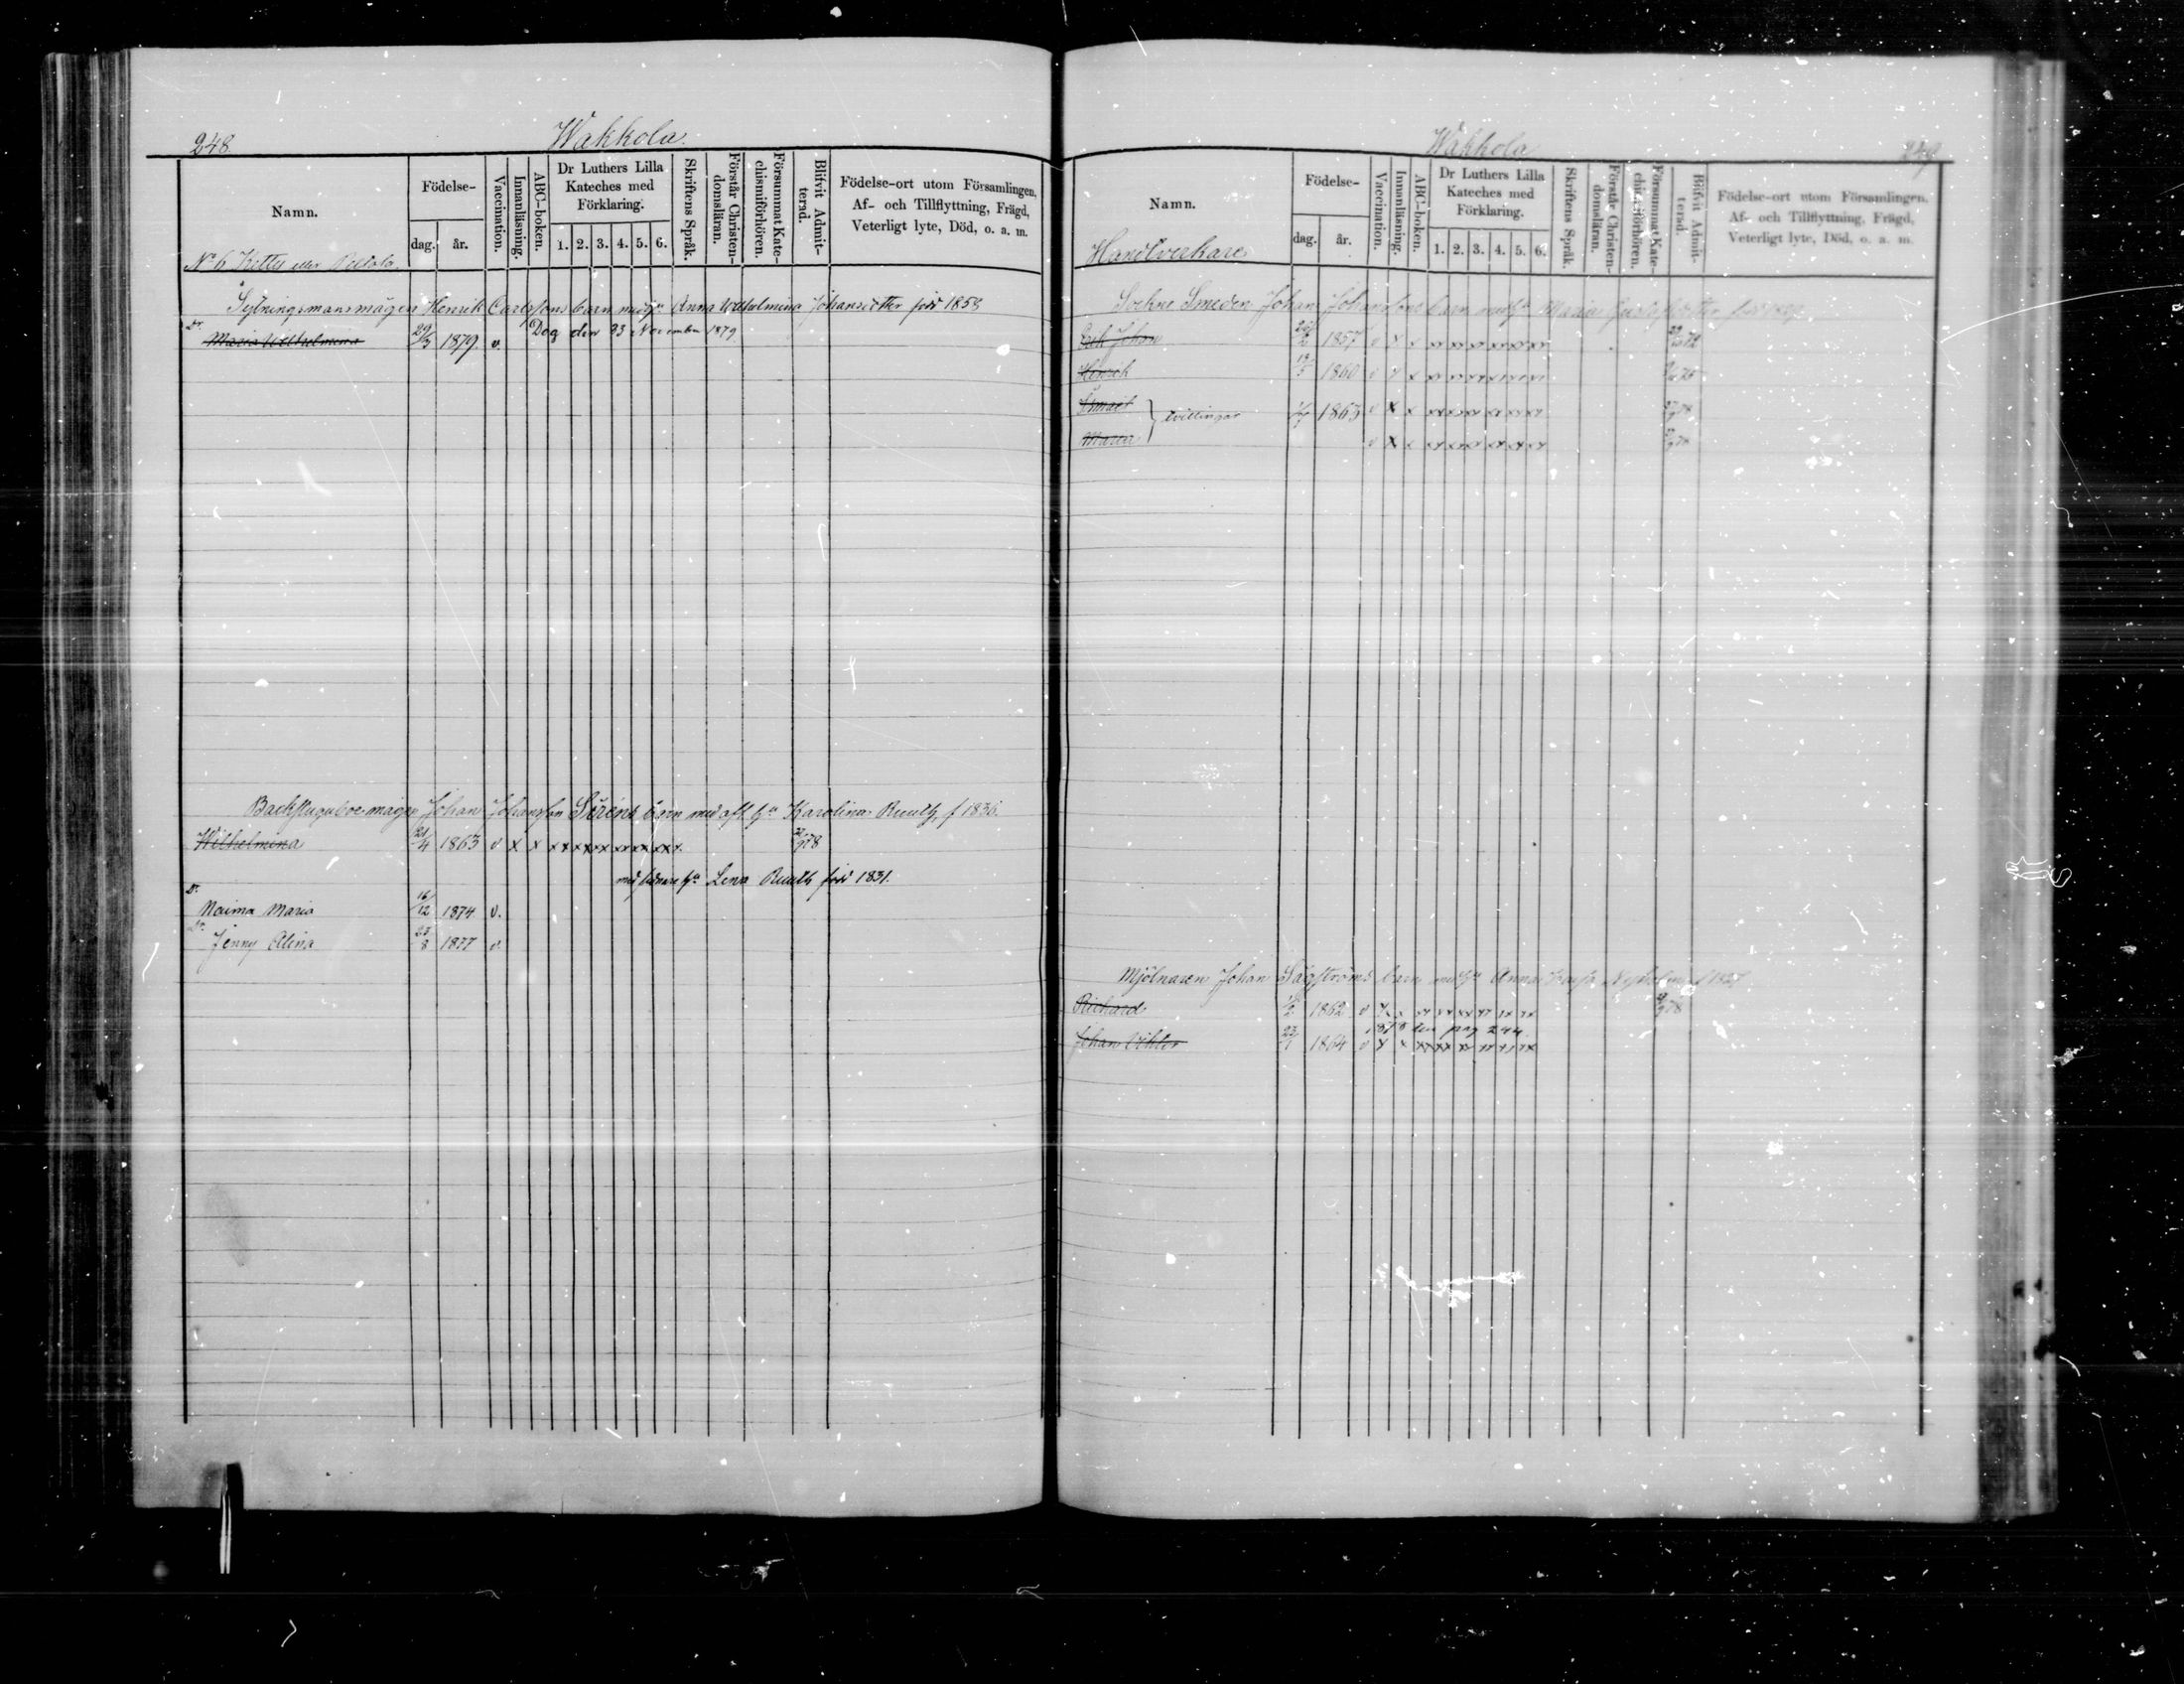 248.
Wakkola.
Namn.
Födelse-
dag.
år.
Vaccination.
Innanläsning.
ABC-boken.
Dr Luthers Lilla
Kateches med
Förklaring.
1. 2. 3. 4. 5. 6.
Skriftens Språk.
Förstår Christen-
domsläran.
Försummat Kate-
chismiförhören.
Blifvit Admit-
terad.
Födelse-ort utom Församlingen,
Af- och Tillflyttning, Frägd,
Veterligt lyte, Död, o. a. m.
No 6 Kettu eller
Sytningsmansmågen Henrik Carlssons barn med Anna Wilhelmina Johansdotter född 1858
Dr. Maria Wilhelmina 29/3 1879. v. Dog den 23 November 1879
Backstuguboe-mågen Johan Johansson Siréns barn med afl. hu Karolina Ruuth, f 1836.
Wilhelmina 21/4 1863 v x x xx xx xx xx xx xx 78
med hu Lena Ruuth född 1831.
Dr. Naima Maria 16/12 1874 v.
Dr. Jenny Alina 23/8 1877 v.
Wakkola
249
Namn.
Födelse-
dag.
år.
Vaccination.
Innanläsning.
ABC-boken.
Dr Luthers Lilla
Kateches med
Förklaring.
1. 2. 3. 4. 5. 6.
Skriftens Språk.
Förstår Christen-
domsläran.
Försummat Kate-
chismiförhören.
Blifvit Admit-
terad.
Födelse-ort utom Församlingen,
Af- och Tillflyttning, Frägd,
Veterligt lyte, Död, o. a. m.
Handtverkare
Sockne Smeden Johan Johanssons barn med hu Maria
Erik Johan 1857 v x x xx xx xx xx xx xx
Henrik 1860 v x x xx xx xx xx xx xx
tvillingar 1863 v x x xx xx xx xx xx xx 78
Maria v x x xx xx xx xx xx xx 78
Mjölnaren Johan Sägströms barn med hu Anna
Richard 1862 v x x xx xx xx xx xx xx 78
pag 244
Johan 23/1 1864 v x x xx xx xx xx xx xx